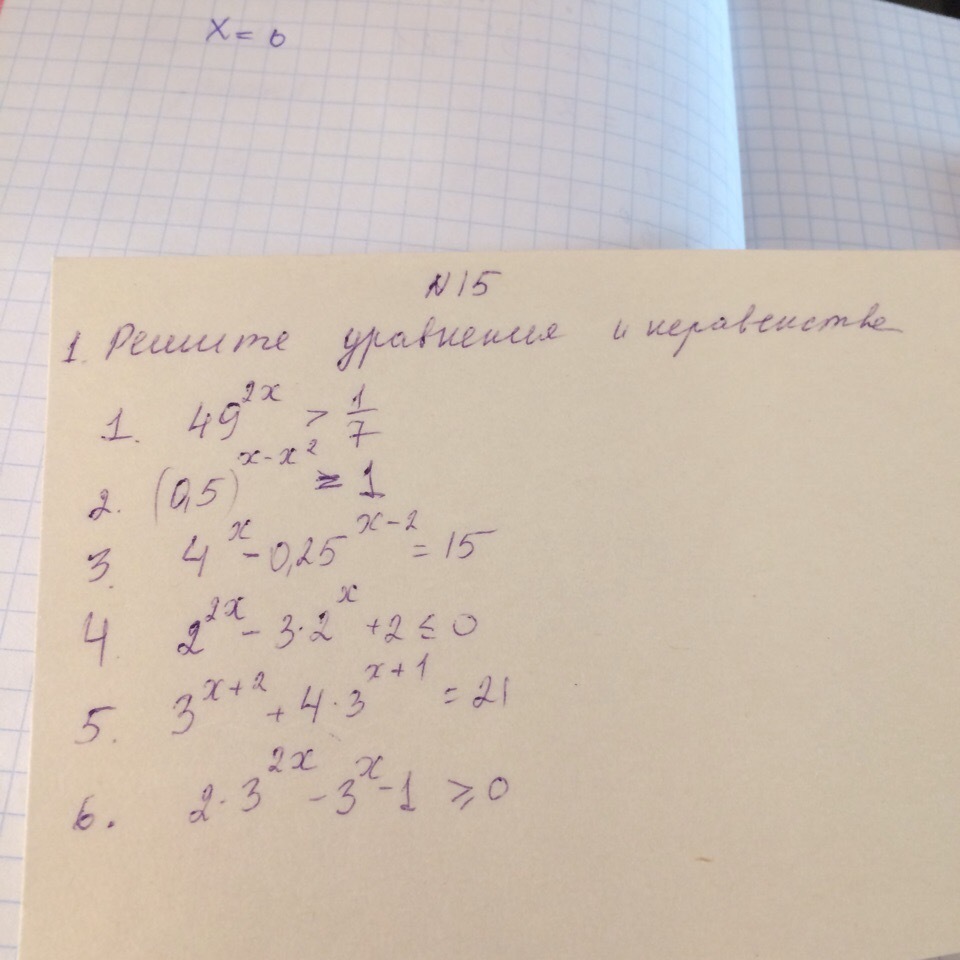 x = 0
N 15
1. Решите уравнения и неравенства
1. 49^{2x} > \frac{1}{7}
2. (0,5)^{x-x^2} = 1
3. 4^x - 0,25^{x-2} = 15
4. 2^{2x} - 3·2^x + 2 ≤ 0
5. 3^{x+2} + 4·3^{x+1} = 21
6. 2·3^{2x} - 3^x - 1 ≥ 0